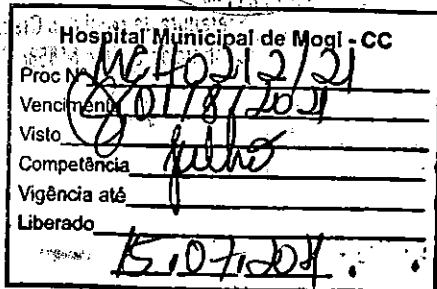 Hospital Municipal de Mogi - CC
Proc Nº MC40212/21
Vencimento 01/8/2021
Visto
Competência julho
Vigência até
Liberado
15.07.2021